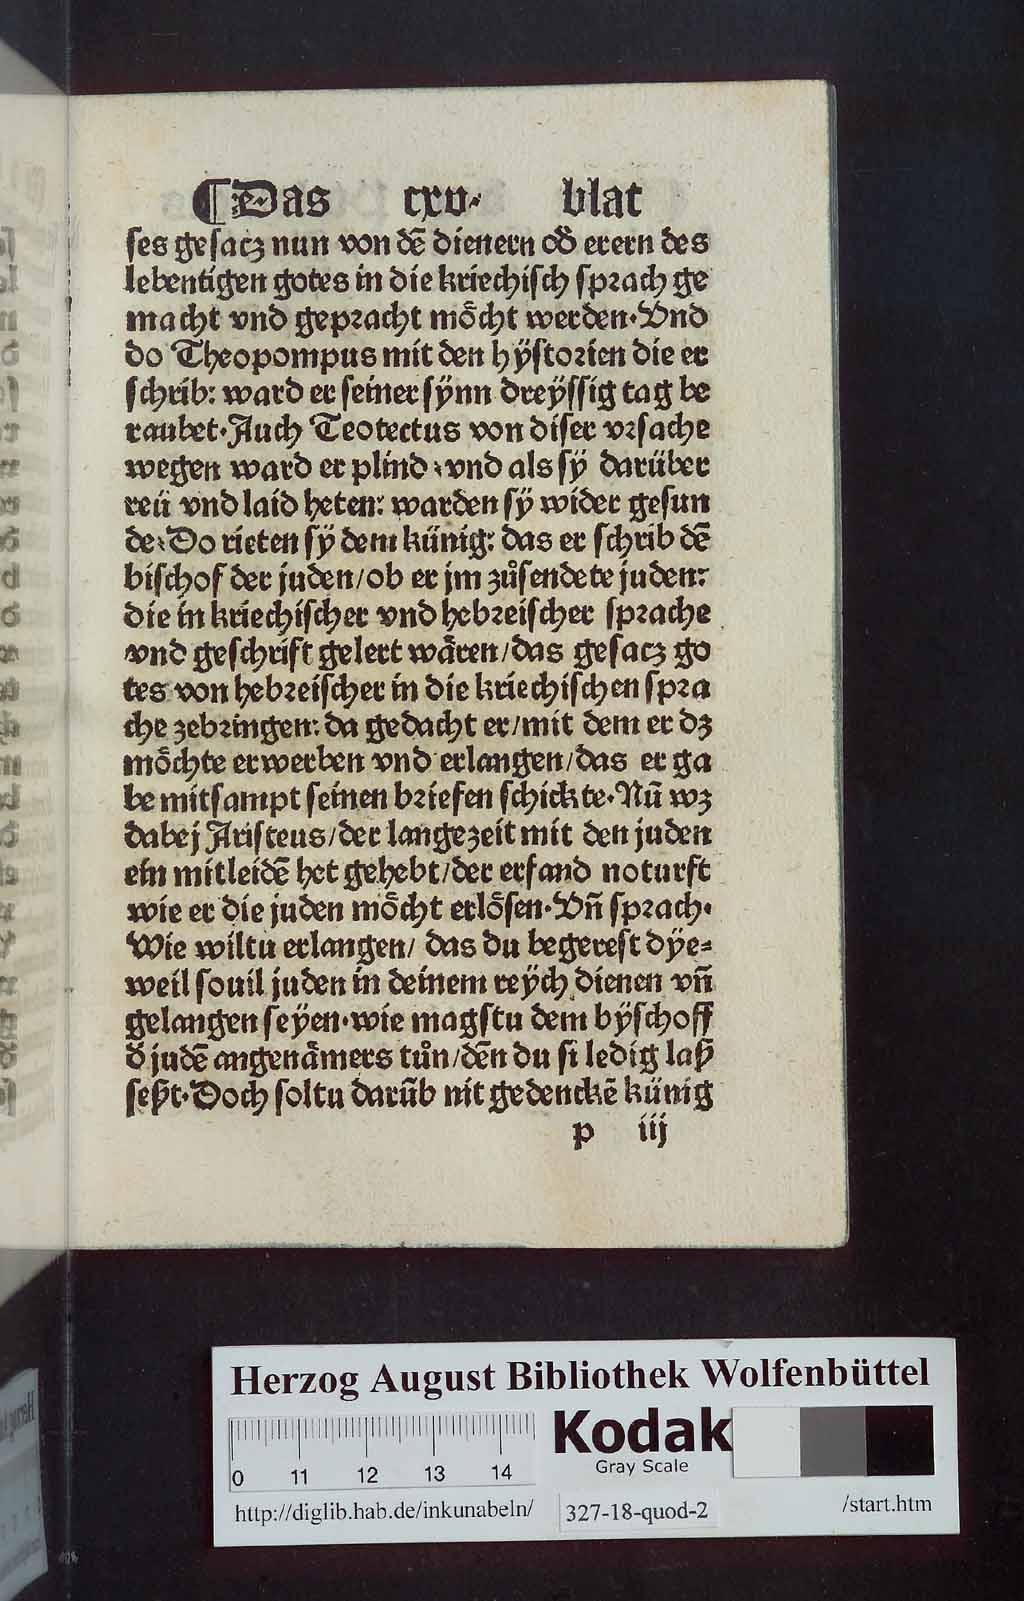 ¶Das cxv. blat
ses gesacz nun von dē dienern od̄ erern des
lebentigen gotes in die kriechisch sprach ge
macht vnd gepracht moͤcht werden. Vnd
do Theopompus mit den hÿstorien die er
schrib: ward er seiner sÿnn dreÿssig tag be
raubet. Auch Teotectus von diser vrsache
wegen ward er plind, vnd als sÿ darüber
reü vnd laid heten: warden sÿ wider gesun
de, Do rieten sÿ dem künig: das er schrib dē
bischof der juden/ob er jm zuͦsendete juden:
die in kriechischer vnd hebreischer sprache
vnd geschrift gelert waͤren/das gesacz go
tes von hebreischer in die kriechischen spra
che zebringen: da gedacht er/mit dem er dz
moͤchte erwerben vnd erlangen/das er ga
be mitsampt seinen briefen schickte. Nū wz
dabej Aristeus/der lange zeit mit den juden
ein mitleidē het gehebt/der erfand noturft
wie er die juden moͤcht erloͤsen. Vn̄ sprach.
Wie wiltu erlangen/ das du begerest dÿe⸗
weil souil juden in deinem reÿch dienen vn̄
gelangen seÿen. wie magstu dem bÿschoff
d̄ judē angenaͤmers tuͦn/dēn du si ledig laß
seßt. Doch soltu darūb nit gedenckē künig
p iij
Herzog August Bibliothek Wolfenbüttel
0 11 12 13 14
Kodak
Gray Scale
http://diglib.hab.de/inkunabeln/
327-18-quod-2
/start.htm